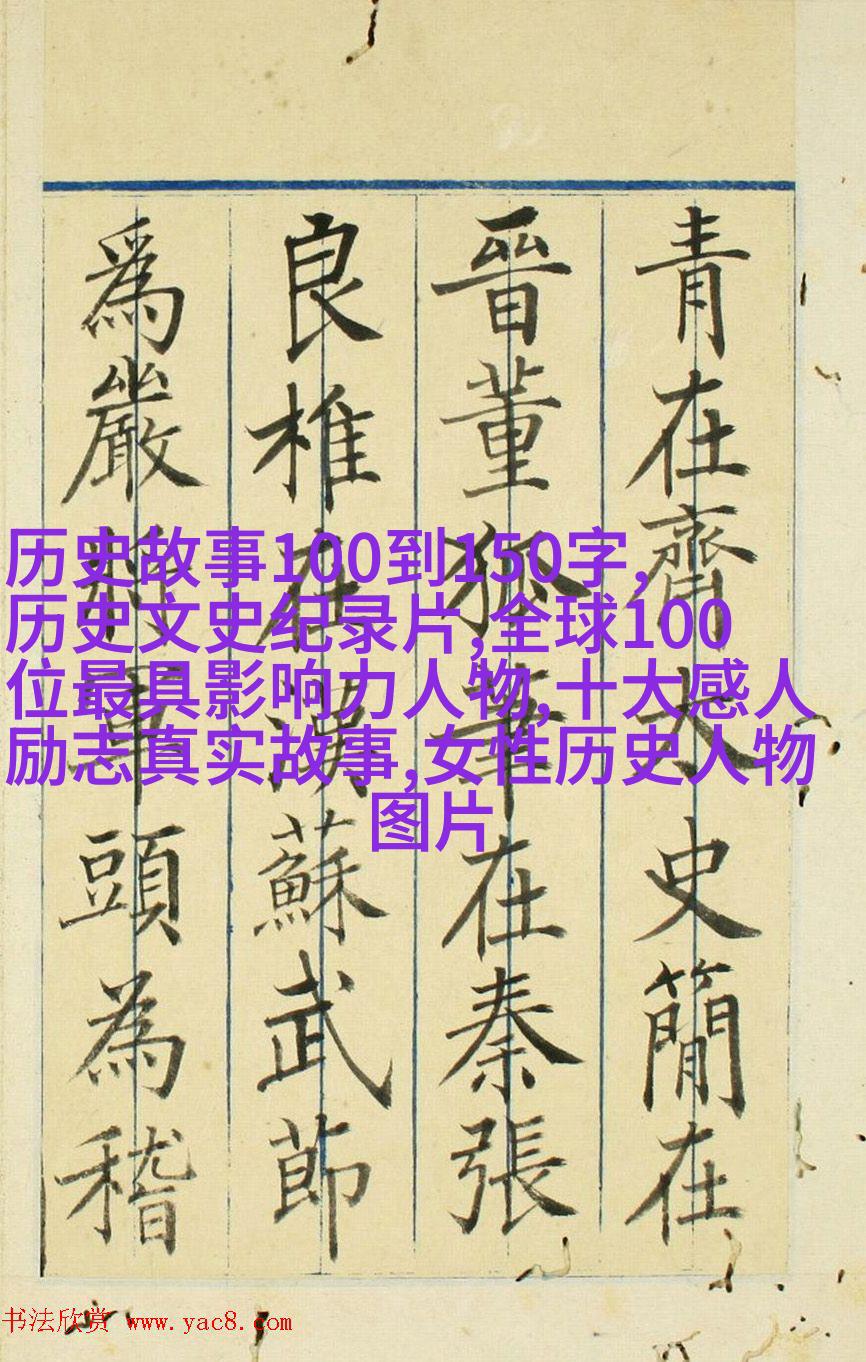 青在齊太史簡在
晉董狐筆在秦張
良椎在漢蘇武節
爲嚴將軍頭為稽
历史故事100到150字,
历史文史纪录片,全球100
位最具影响力人物,十大感人
励志真实故事,女性历史人物
图片
书法欣赏 www.yac8.com